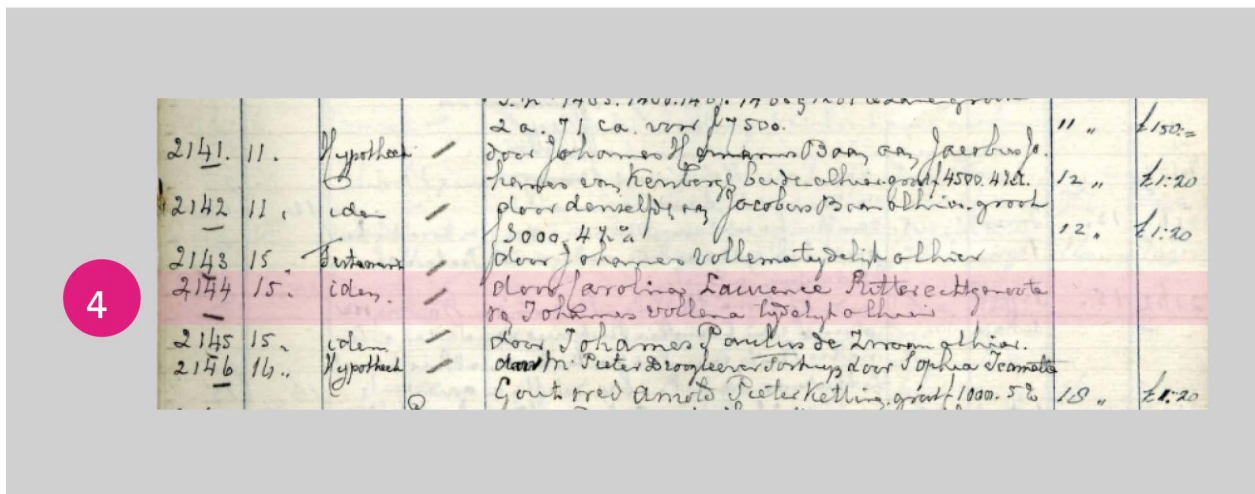 2 a. 71 ca. voor f 7500. 11 " £150:=
2141. 11. Hypotheek / door Johannes Hermanus Baan aan Jacobus Jo
hannes van Kersbergen beide alhier groot f 4500. 12 " £1:20
2142 11. idem / door denzelfde aan Jacobus Baan alhier groot
f 3000. 4½% 12. £1:20
2143 15 Testament / door Johannes Vollema tijdelijk alhier
4 2144 15. idem. / door Carolina Laurence Ritter echtgenoote
van Johannes Vollema tijdelijk alhier
2145 15. idem / door Johannes Paulus de Zwaan alhier.
2146 16.. Hypotheek / door Mr. Pieter Droogleever Fortuyn door Sophia
Arnold Pieter Ketting. groot f 1000. 5% 18 " £1:20